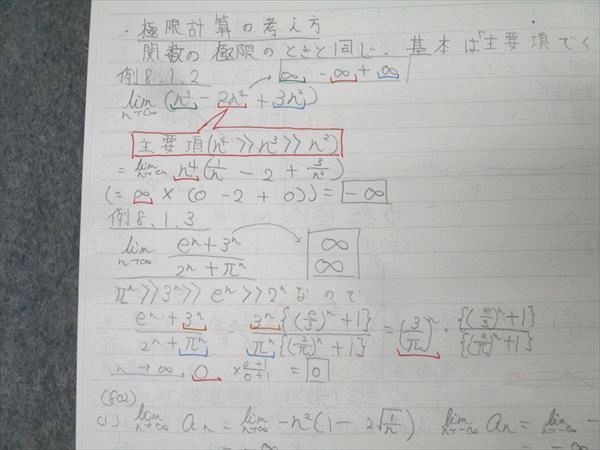 ・極限計算の考え方
関数の極限のときと同じ. 基本は「主要項でく
例8.1.2
∞ - ∞ + ∞
lim n→∞ (n³ - 2n⁴ + 3n²)
主要項(n⁴ >> n³ >> n²)
= lim n→∞ n⁴(1/n - 2 + 3/n²)
(= ∞ × (0 - 2 + 0)) = -∞
例8.1.3
lim n→∞ (eⁿ+3ⁿ)/(2ⁿ+πⁿ) ∞/∞
πⁿ >> 3ⁿ >> eⁿ >> 2ⁿ なので
(eⁿ+3ⁿ)/(2ⁿ+πⁿ) 3ⁿ{(e/3)ⁿ+1}/πⁿ{(2/π)ⁿ+1} = (3/π)ⁿ・{(e/3)ⁿ+1}/{(2/π)ⁿ+1}
n→∞, 0 × (0+1)/(0+1) = 0
(802)
(1) lim n→∞ an = lim n→∞ -n²(1 - 2√(1/n)) lim n→∞ an = lim n→∞ -
= -∞ = -∞